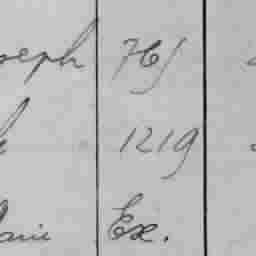 oseph 765
1219
arie Ex.